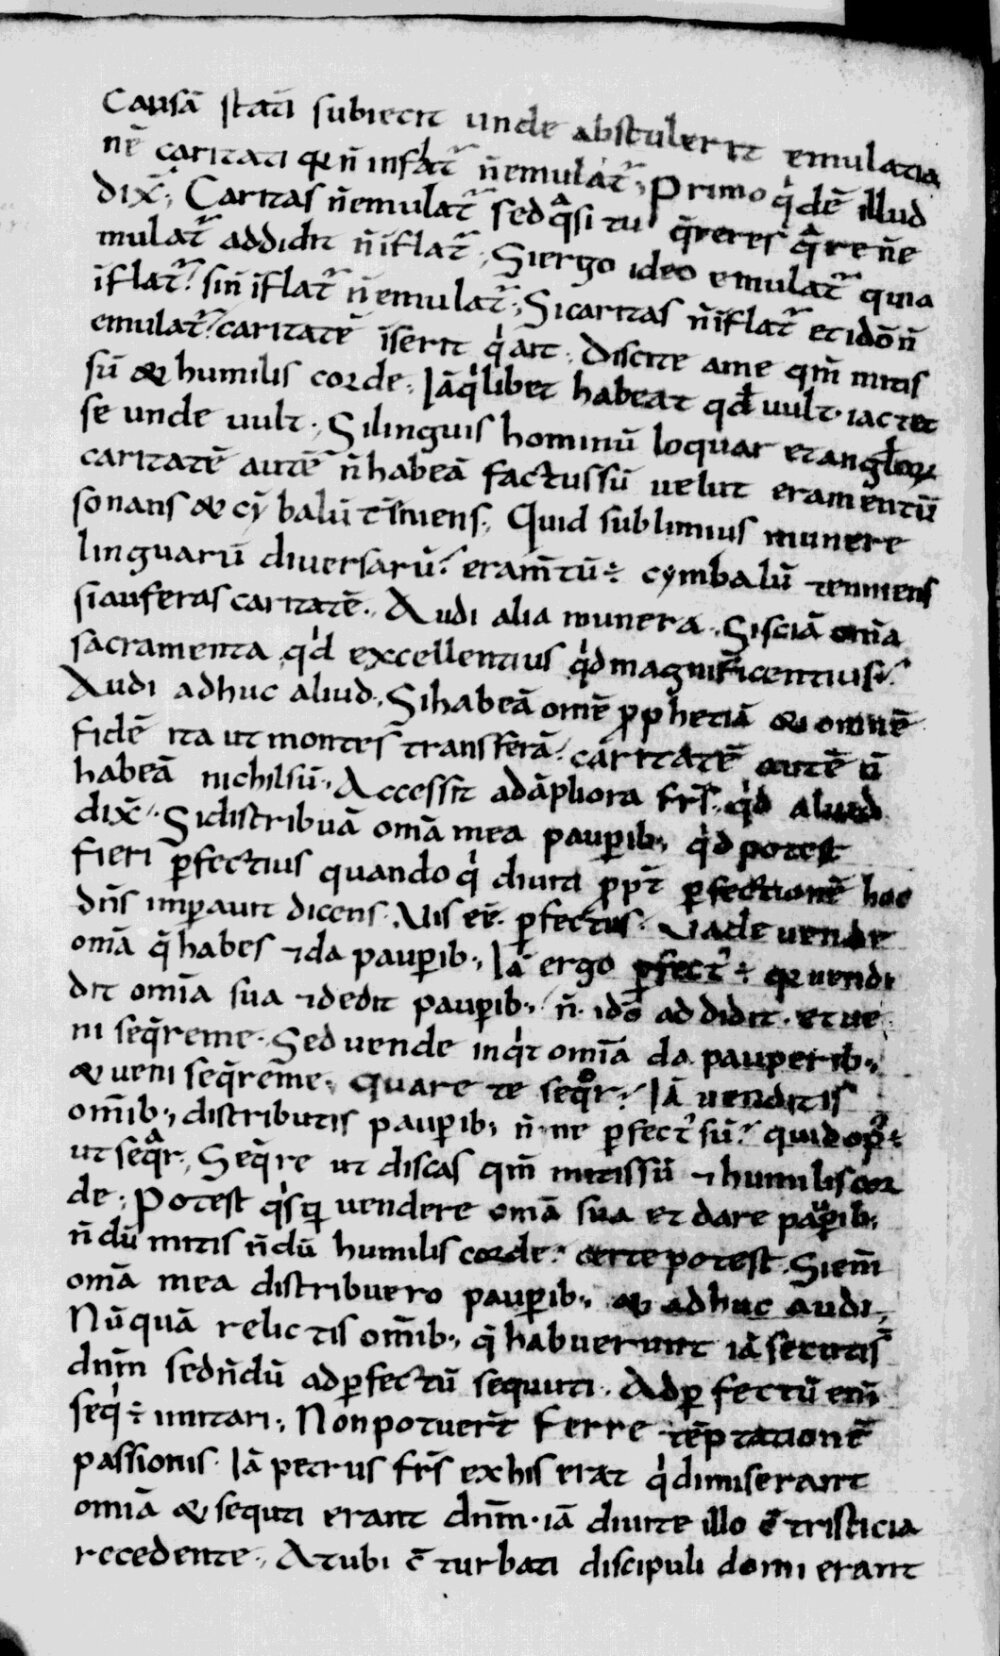 Causā statī subiecit unde abstulerit emulatia
nē caritati q̇ n̄ inflat̄ n̄ emulat̄; Primo q̇dē illud
dix̄; Caritas n̄ emulat̄ sed q̇si tu q̄reres q̄re n̄ e
mulat̄ addidit n̄ īflat̄; Si ergo ideo emulat̄ quia
īflat̄? si n̄ īflat̄ n̄ emulat̄; Si caritas n̄ īflat̄ et idō n̄
emulat̄? caritatē īserit q̇ ait. Discite a me qm̄ mitis
sū & humilis corde; Iā q̇libet habeat qd̄ vult. iactet
se unde vult; Si linguis hominū loquar et angloꝝ
caritatē autē n̄ habeā factus sū velut eramentū
sonans & cymbalū tīniens; Quid sublimius munere
linguarū diversarū? eram̄tū ÷ cymbalū tenniens
si auferas caritatē. Audi alia munera. Si sciā om̄a
sacramenta qd̄ excellentius qd̄ magnificentius?
Audi adhuc aliud. Si habeā omē ꝓphetiā & omnē
fidē ita ut montes transferā? caritatē autē n̄
habeā nichil sū. Accessit ad āpliora frs̄. qd̄ aliud
dix̄. Si distribuā om̄a mea pauꝑib; qd̄ potest
fieri ꝑfectius quando q̇ diviti ꝓpt̄ ꝑfectionē hoc
dn̄s imꝑavit dicens. Vis eē ꝑfectus? Vade vende
om̄a q̄ habes ⁊ da pauꝑib; Iā ergo ꝑfect᷒ ÷ q̇ vendi
dit om̄ia sua ⁊ dedit pauꝑib; n̄. idō addidit. et ve
ni seq̄re me. Sed vende inq̇t om̄ia da pauperib;
& veni seq̄re me; quare te seqr̄? Iā venditis
om̄ib; distributis pauꝑib; n̄ne ꝑfect᷒ sū? quid op᷒ ÷
ut seqr̄; Seq̄re ut discas qm̄ mitis sū ⁊ humilis cor
de; Potest q̇sꝗ vendere om̄a sua et dare pauꝑib;
n̄dū mitis n̄dū humilis corde? certe potest. Si em̄
om̄a mea distribuero pauꝑib; & adhuc audi;
Nūquā relictis om̄ib; q̄ habuerunt iā secutis̄
dnm̄ sed n̄dū ad ꝑfectū sequuti. Ad ꝑfectū em̄
seq̇ ÷ imitari; Non potuer̄t ferre tēptationē
passionis. Iā petrus frs̄ ex his erat q̇ dimiserant
omiā & sequti erant dnm̄. iā divite illo c̄ tristicia
recedente; At ubi c̄ turbati discipuli domi erant